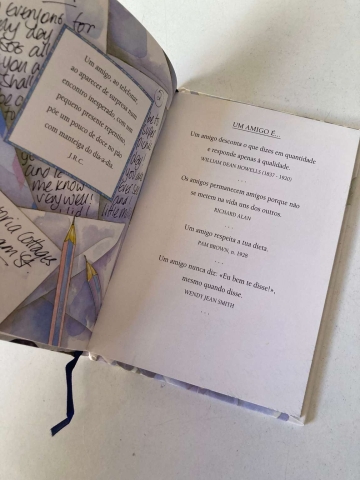 everyone for
my day
Um amigo, ao telefonar,
ao aparecer de surpresa num
encontro inesperado, com um
pequeno presente repentino,
põe um pouco de doce no pão
com manteiga do dia-a-dia.
J.R.C.
me know
very well!
UM AMIGO É...
Um amigo desconta o que dizes em quantidade
e responde apenas à qualidade.
WILLIAM DEAN HOWELLS (1837 - 1920)
Os amigos permanecem amigos porque não
se metem na vida uns dos outros.
RICHARD ALAN
Um amigo respeita a tua dieta.
PAM BROWN, n. 1928
Um amigo nunca diz: «Eu bem te disse!»,
mesmo quando disse.
WENDY JEAN SMITH